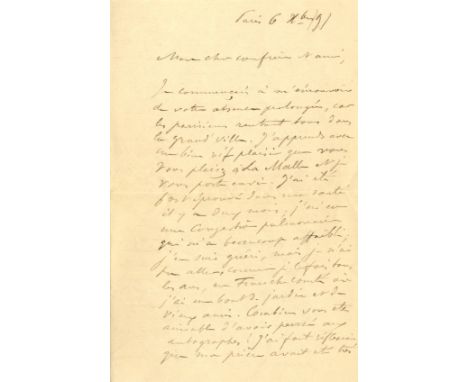 Paris 6 Xbre/91
Mon cher confrère & ami,
Je commençais à m'émouvoir
de votre absence prolongée, car
les parisiens rentrent tous dans
la grand'ville. J'apprends avec
un bien vif plaisir que vous
vous plaisez à la Malle & je
vous porte envie. J'ai été
fort éprouvé dans ma santé
il y a deux mois. J'ai eu
une congestion pulmonaire
qui m'a beaucoup affaibli,
j'en suis guéri, mais je n'ai
pu aller, comme je le fais tous
les ans, en Franche comté où
j'ai un bout de jardin et de
vieux amis. Combien vous êtes
aimable d'avoir pensé aux
autographes! J'ai fait réflexion
que ma pièce avait été très